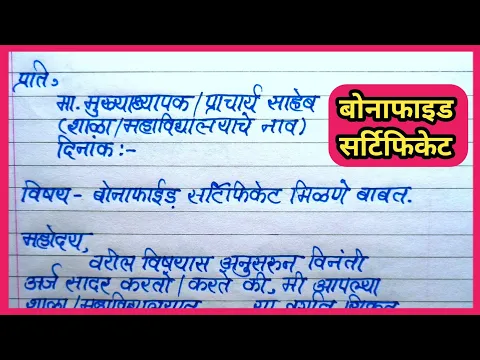 प्रति,
मा. मुख्याध्यापक/प्राचार्य साहेब
(शाळा/महाविद्यालयाचे नाव)
दिनांक:-
विषय - बोनाफाईड़ सर्टिफिकेट मिळणे बाबत.
महोदय,
वरील विषयास अनुसरुन विनंती
अर्ज सादर करतो/करते की, मी आपल्या
शाळा/महाविद्यालयात
बोनाफाइड
सर्टिफिकेट